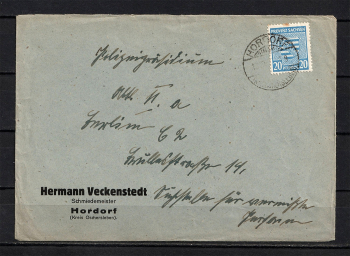 HORDORF
PROVINZ SACHSEN
20 20
Polizeipräsidium
Abt. II. a
Berlin C 2
Hermann Veckenstedt
Schmiedemeister
Hordorf
(Kreis Oschersleben)
Suchstelle für vermißte
Personen